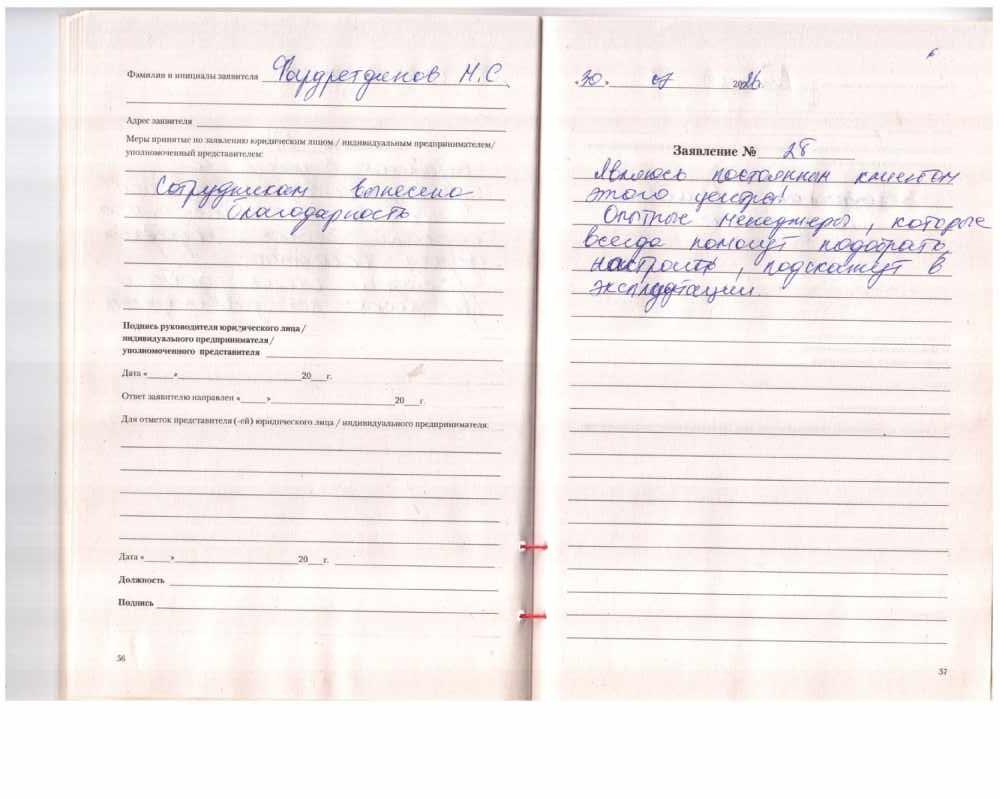 Фамилия и инициалы заявителя Фаудретдинов Н.С.
Адрес заявителя
Меры принятые по заявлению юридическим лицом / индивидуальным предпринимателем/
уполномоченный представителем:
Сотрудникам вынесено
благодарность
Подпись руководителя юридического лица /
индивидуального предпринимателя /
уполномоченного представителя
Дата «____»____________20___г.
Ответ заявителю направлен «____»____________20___г.
Для отметок представителя (-ей) юридического лица / индивидуального предпринимателя:
Дата «____»____________20___г.
Должность
Подпись
36
«30» 07 20 г.
Заявление № 28
Являюсь постоянным клиентом
этого центра!
Опытные менеджеры, которые
всегда помогут подобрать,
настроить, подскажут в
эксплуатации.
37